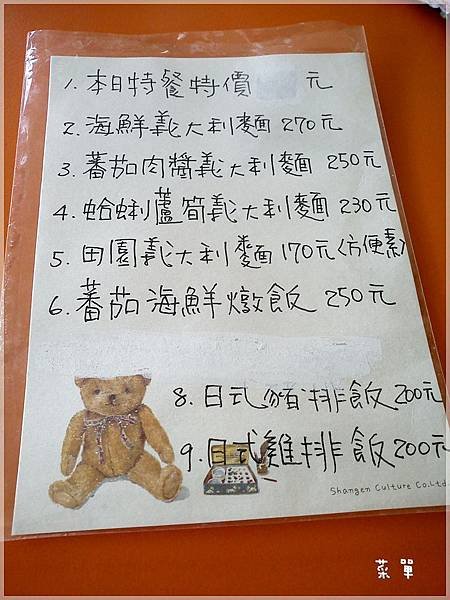 1. 本日特餐特價 元
2. 海鮮義大利麵 270元
3. 蕃茄肉醬義大利麵 250元
4. 蛤蜊蘆筍義大利麵 230元
5. 田園義大利麵 170元〈方便素〉
6. 蕃茄海鮮燉飯 250元
8. 日式豬排飯 200元
9. 日式雞排飯 200元
Shangen Culture Co.Ltd.
菜單